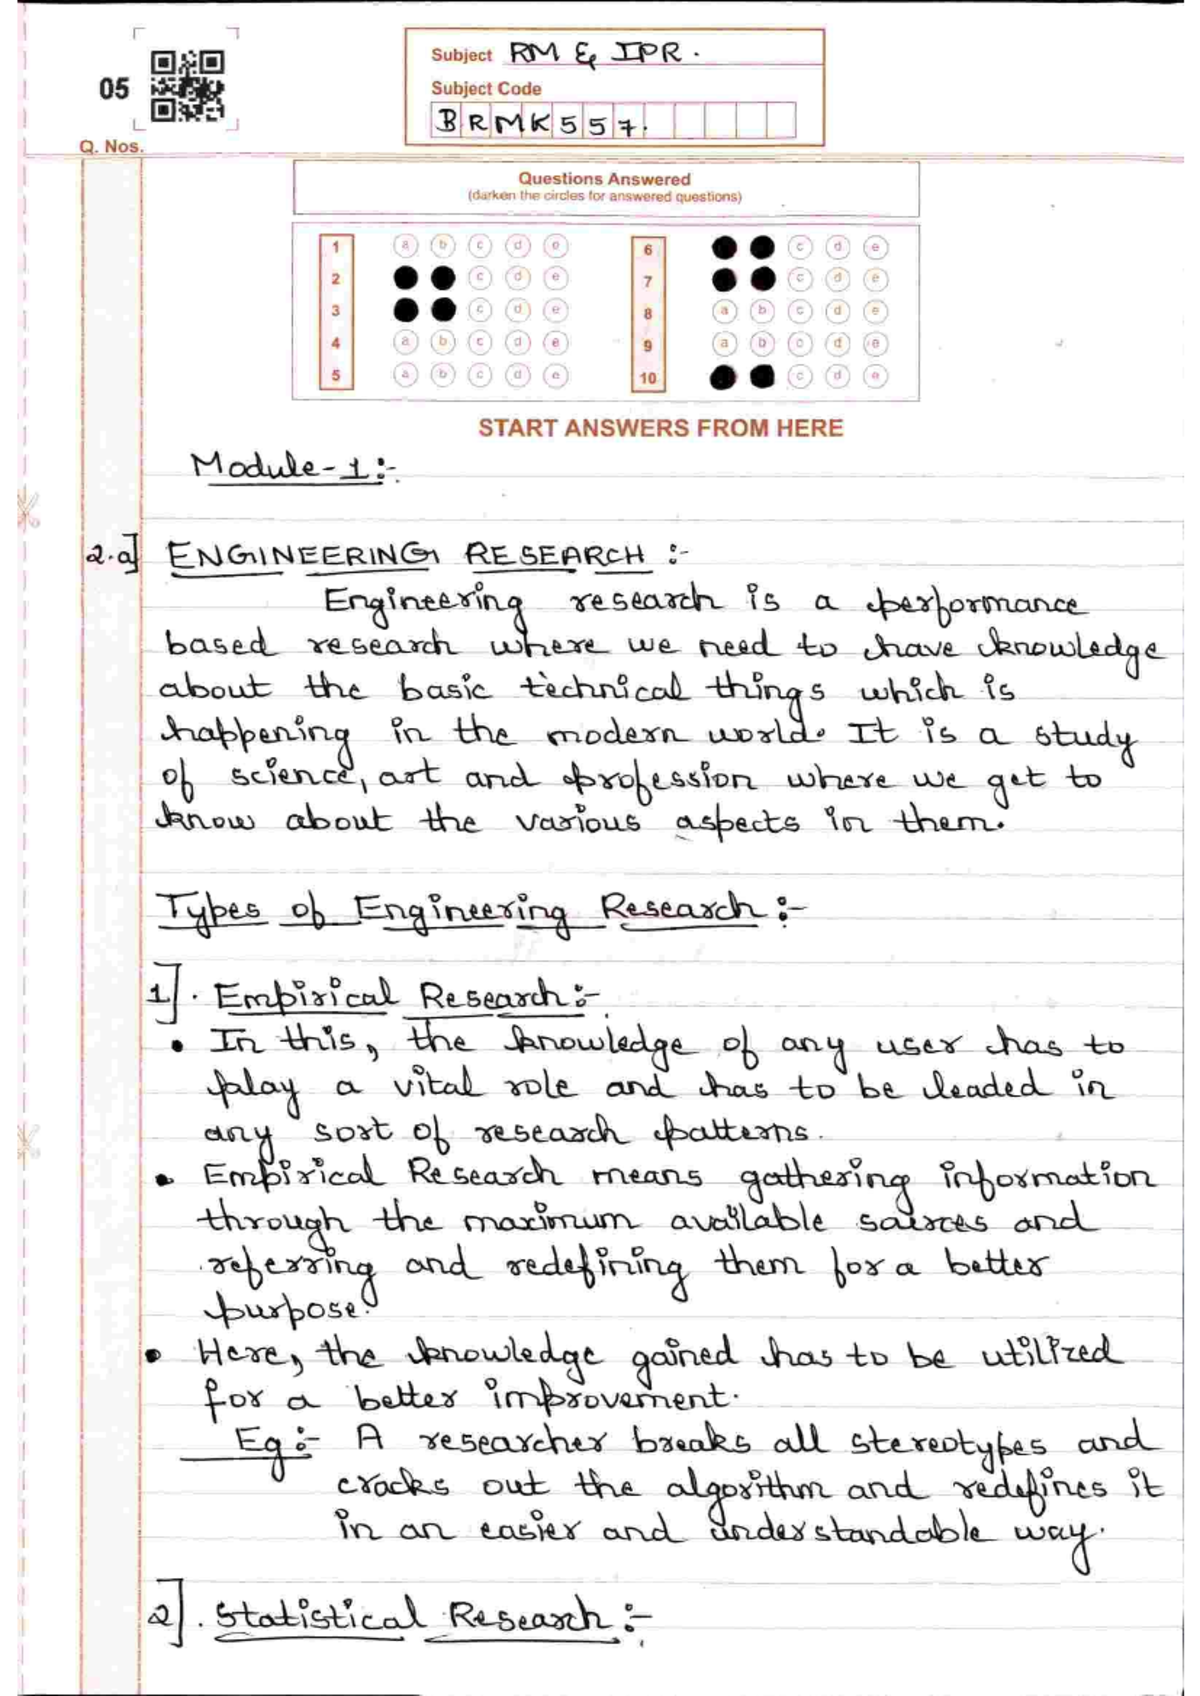 05
Subject RM & IPR.
Subject Code
BRMK557.
Q. Nos.
Questions Answered
(darken the circles for answered questions)
1 a b c d e 6 c d e
2 c d e 7 c d e
3 c d e 8 a b c d e
4 a b c d e 9 a b c d e
5 a b c d e 10 c d e
START ANSWERS FROM HERE
Module-1:-
2.a] ENGINEERING RESEARCH :-
Engineering research is a performance
based research where we need to have knowledge
about the basic technical things which is
happening in the modern world. It is a study
of science, art and profession where we get to
know about the various aspects in them.
Types of Engineering Research :-
1]. Empirical Research :-
• In this, the knowledge of any user has to
play a vital role and has to be leaded in
any sort of research patterns.
• Empirical Research means gathering information
through the maximum available sources and
referring and redefining them for a better
purpose.
• Here, the knowledge gained has to be utilized
for a better improvement.
Eg :- A researcher breaks all stereotypes and
cracks out the algorithm and redefines it
in an easier and understandable way.
2]. Statistical Research :-